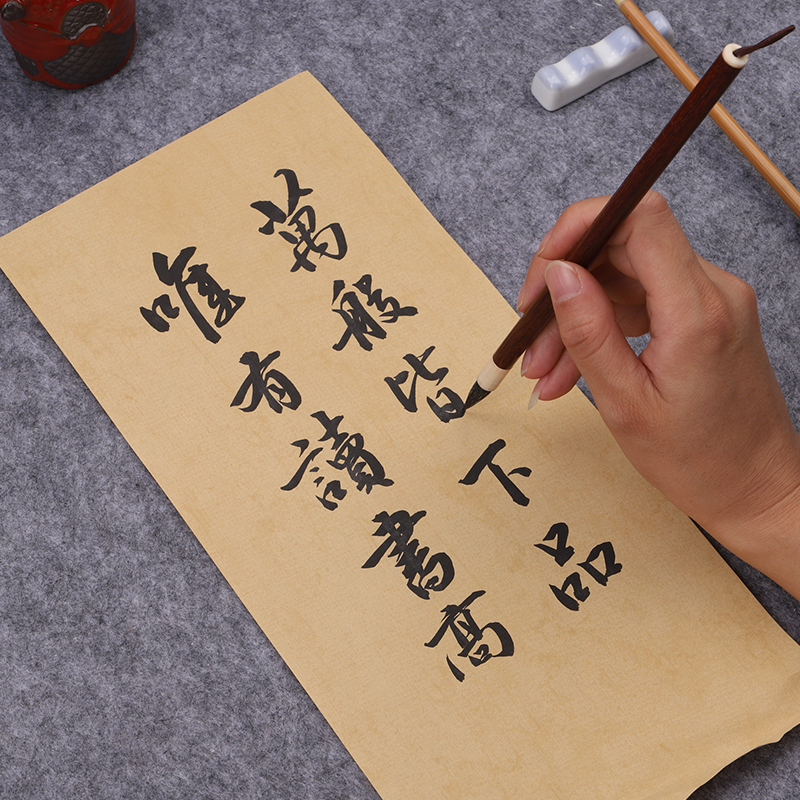 萬般皆下品
唯有讀書高